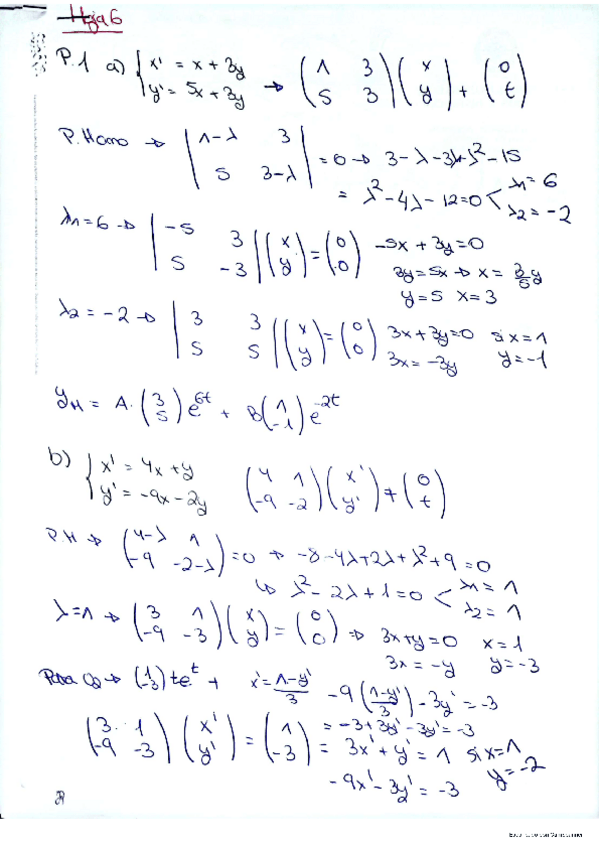 Hoja 6
P.1 a) { x' = x + 3y
y' = 5x + 3y → (1 3 / 5 3)(x / y) + (0 / t)
P. Homo → |1-λ 3 / 5 3-λ| = 0 → 3 - λ - 3λ + λ² - 15
= λ² - 4λ - 12 = 0 < λ1 = 6 / λ2 = -2
λ1 = 6 → |-5 3 / 5 -3|(x / y) = (0 / 0) -5x + 3y = 0
3y = 5x → x = 3/5 y
y = 5 x = 3
λ2 = -2 → |3 3 / 5 5|(x / y) = (0 / 0) 3x + 3y = 0 si x = 1
3x = -3y y = -1
yH = A · (3 / 5) e^6t + B (1 / -1) e^-2t
b) { x' = 4x + y
y' = -9x - 2y (4 1 / -9 -2)(x' / y') + (0 / t)
P.H → (4-λ 1 / -9 -2-λ) = 0 → -8 - 4λ + 2λ + λ² + 9 = 0
↳ λ² - 2λ + 1 = 0 < λ1 = 1 / λ2 = 1
λ = 1 → (3 1 / -9 -3)(x / y) = (0 / 0) ⇒ 3x + y = 0 x = 1
3x = -y y = -3
Para C2 → (1 / -3) te^t + x' = 1-y'/3 - 9(1-y'/3) - 3y' = -3
= -3 + 3y' - 3y' = -3
(3 1 / -9 -3)(x' / y') = (1 / -3) = 3x' + y' = 1 si x = 1
y = -2
- 9x' - 3y' = -3